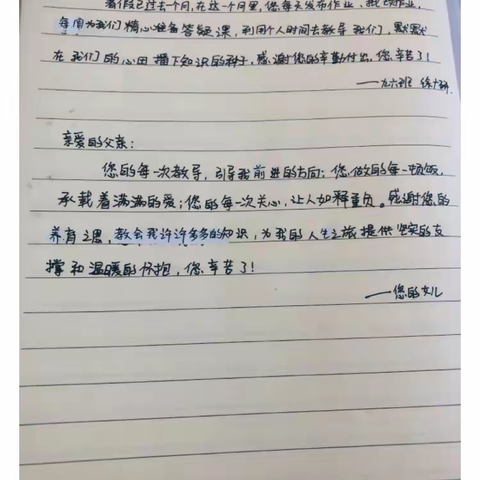 暑假已过去一个月,在这一个月里,您每天发布作业、批改作业,
每周为我们精心准备答疑课,利用个人时间去教导我们,默默
在我们的心田播下知识的种子,感谢您的辛勤付出,您辛苦了!
——九六班
亲爱的父亲:
您的每一次教导,引导我前进的方向;您做的每一顿饭,
承载着满满的爱;您的每一次关心,让人如释重负。感谢您的
养育之恩,教会我许许多多的知识,为我的人生之旅提供坚实的支
撑和温暖的怀抱,您辛苦了!
——您的女儿